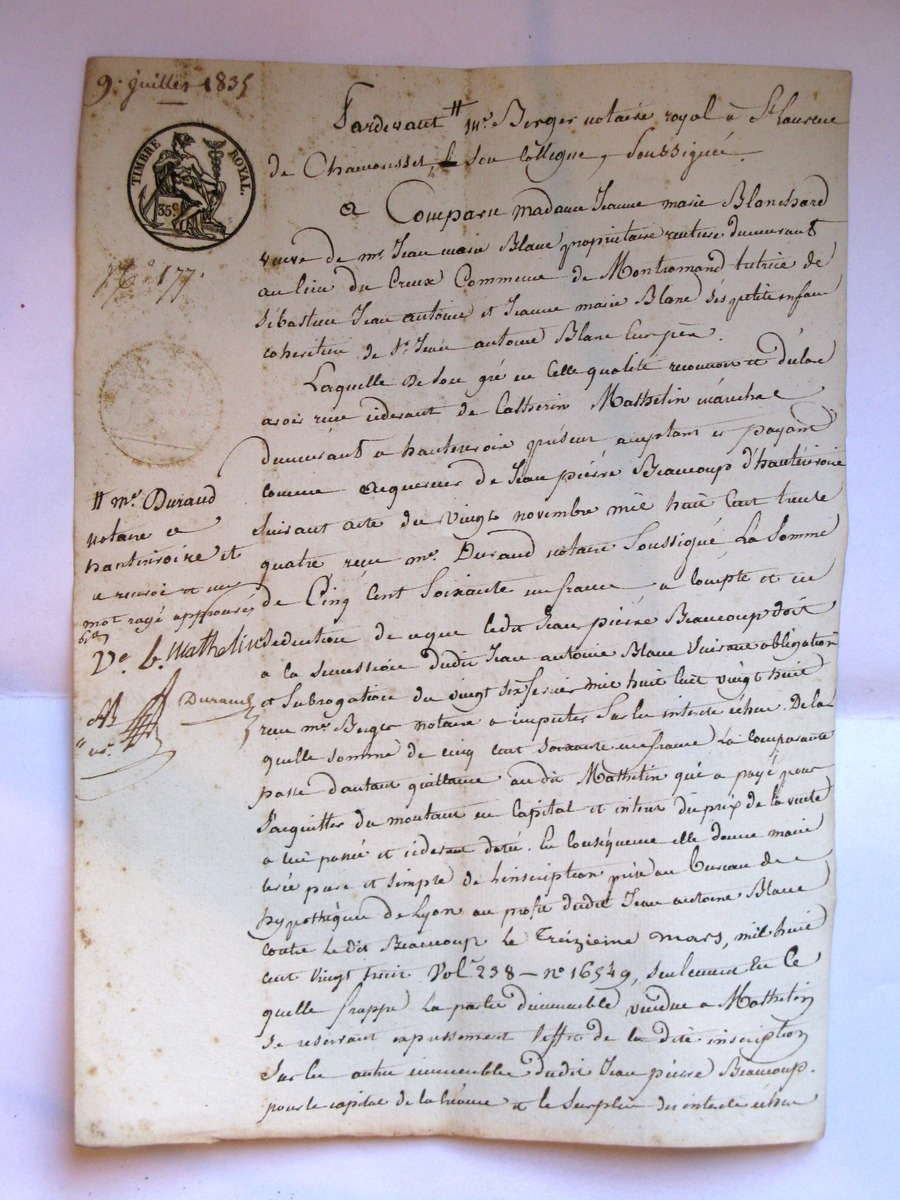 9. juillet 1835
TIMBRE ROYAL.
35c
No. 177.
Pardevant # Me. Berger notaire royal à St Laurent
de Chamousset & Son Collegue, Soussignée.
a Comparu madame Jeanne marie Blanchard
veuve de mr. Jean marie Blanc propriétaire rentiere demeurant
au lieu du Creux Commune de Montromand tutrice de
Sébastien Jean antoine et Jeanne marie Blanc Ses petits enfans
cohéritiers de Sr. Jean antoine Blanc leur père.
Laquelle de Son gré en Cette qualité reconnoit et déclare
avoir reçu cidevant de Catherin Mathelin
demeurant a hauterivoire présent acceptant et payant
comme acquereur de Jean pierre Beaucoup d'hauterivoire
Suivant acte du Vingt novembre mil huit Cent trente
quatre reçu me. Durand notaire Soussigné La Somme
de Cinq Cent Soixante un francs a Compte et en
déduction de ce que ledit Jean pierre Beaucoup doit
à la Succession dudit Jean antoine Blanc Suivant obligation
et Subrogation du vingt Six fevrier mil huit Cent vingt huit
reçu me. Berger notaire a imputer Sur les interets échus. De la
quelle Somme de cinq cent Soixante un francs La Comparante
passe d'autant quittance audit Mathelin qui a payé pour
S'acquitter du montant en Capital et interet du prix de la vente
a lui passée et cidevant datée. En Conséquence elle donne main
levée pure et Simple de L'inscription prise au bureau des
hypothèques de Lyon au profit dudit Jean antoine Blanc
contre le dit Beaucoup le Treizieme mars, mil huit
cent vingt huit Vol. 238 – no 16549, Seulement En Ce
quelle frappe La partie d'immeuble vendue a Mathelin
Se reservant expressement l'effet de la dite inscription
Sur les autres immeubles dudit Jean pierre Beaucoup.
pour le capital de la Créance et le Surplus des interets échus
# me. Durand
notaire a
hauterivoire et
a renvoi et un
mot rayé approuvés
Ve. B. Mathelin
Durand